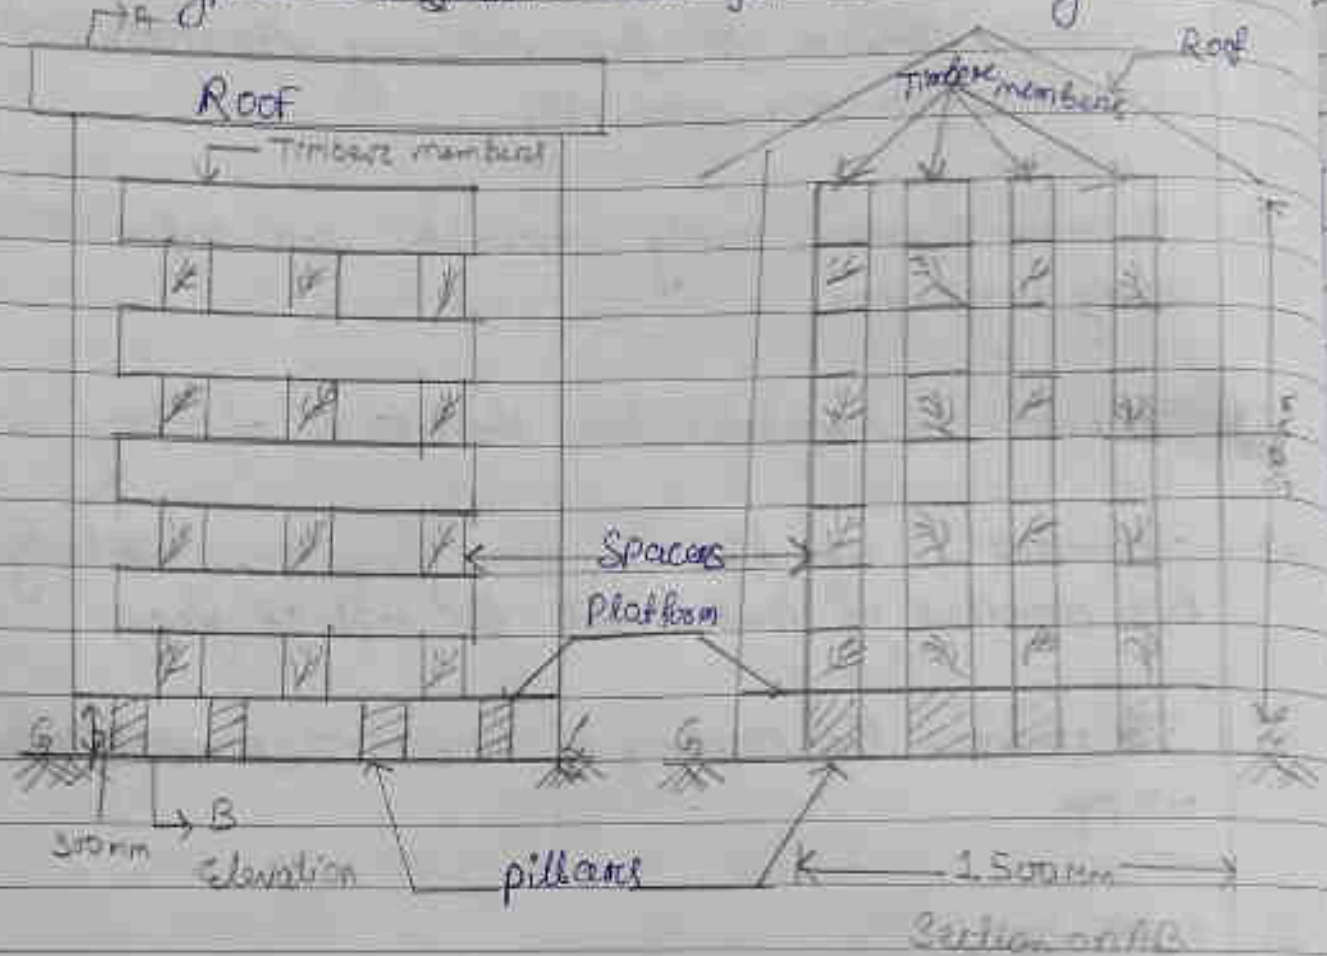 A
Roof
Roof
Timbere members
Timbere members
Spacers
Platform
G
G
300mm
B
Elevation
pillars
1500mm
Section on AB